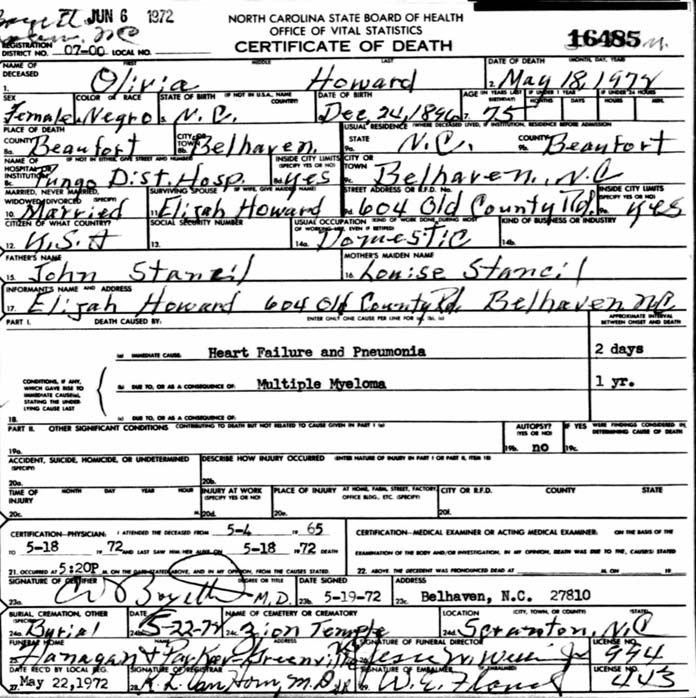 JUN 6 1972
NORTH CAROLINA STATE BOARD OF HEALTH
OFFICE OF VITAL STATISTICS
CERTIFICATE OF DEATH
16485
REGISTRATION DISTRICT NO. 07-00 LOCAL NO.
NAME OF DECEASED FIRST MIDDLE LAST DATE OF DEATH (MONTH, DAY, YEAR)
1. Olivia Howard 2. May 18, 1972
SEX COLOR OR RACE STATE OF BIRTH (IF NOT IN U.S.A. NAME COUNTRY) DATE OF BIRTH AGE (IN YEARS LAST BIRTHDAY) IF UNDER 1 YEAR MONTHS DAYS IF UNDER 24 HOURS HOURS MIN.
Female Negro N.C. Dec 24, 1896 7. 75
PLACE OF DEATH USUAL RESIDENCE (WHERE DECEASED LIVED, IF INSTITUTION, RESIDENCE BEFORE ADMISSION)
COUNTY 8a. Beaufort CITY OR TOWN 8b. Belhaven STATE 9a. N.C. COUNTY Beaufort
NAME OF HOSPITAL OR INSTITUTION (IF NOT IN EITHER, GIVE STREET AND NUMBER) INSIDE CITY LIMITS (SPECIFY YES OR NO) CITY OR TOWN
8c. Pungo Dist. Hosp. 8d. yes 9c. Belhaven, N.C
MARRIED, NEVER MARRIED, WIDOWED, DIVORCED (SPECIFY) SURVIVING SPOUSE (IF WIFE, GIVE MAIDEN NAME) STREET ADDRESS OR R.F.D. NO. INSIDE CITY LIMITS (SPECIFY YES OR NO)
10. Married 11. Elijah Howard 9d. 604 Old County Rd. 9e. yes
CITIZEN OF WHAT COUNTRY? SOCIAL SECURITY NUMBER USUAL OCCUPATION (KIND OF WORK DONE DURING MOST OF WORKING LIFE, EVEN IF RETIRED) KIND OF BUSINESS OR INDUSTRY
12. U.S.A 13. 14a. Domestic 14b.
FATHER'S NAME MOTHER'S MAIDEN NAME
15. John Stancil 16. Louise Stancil
INFORMANT'S NAME AND ADDRESS
17. Elijah Howard 604 Old County Rd. Belhaven N.C.
PART I. DEATH CAUSED BY: ENTER ONLY ONE CAUSE PER LINE FOR (a), (b), (c) APPROXIMATE INTERVAL BETWEEN ONSET AND DEATH
(a) IMMEDIATE CAUSE: Heart Failure and Pneumonia 2 days
CONDITIONS, IF ANY, WHICH GAVE RISE TO IMMEDIATE CAUSE(a), STATING THE UNDERLYING CAUSE LAST
(b) DUE TO, OR AS A CONSEQUENCE OF: Multiple Myeloma 1 yr.
18. (c) DUE TO, OR AS A CONSEQUENCE OF:
PART II. OTHER SIGNIFICANT CONDITIONS CONTRIBUTING TO DEATH BUT NOT RELATED TO CAUSE GIVEN IN PART I (a) AUTOPSY? (YES OR NO) IF YES WERE FINDINGS CONSIDERED IN DETERMINING CAUSE OF DEATH
19a. 19b. no 19c.
ACCIDENT, SUICIDE, HOMICIDE, OR UNDETERMINED (SPECIFY) DESCRIBE HOW INJURY OCCURRED (ENTER NATURE OF INJURY IN PART I OR PART II, ITEM 18)
20a. 20b.
TIME OF INJURY MONTH DAY YEAR HOUR INJURY AT WORK (SPECIFY YES OR NO) PLACE OF INJURY AT HOME, FARM, STREET, FACTORY, OFFICE BLDG., ETC. (SPECIFY) CITY OR R.F.D. COUNTY STATE
20c. M. 20d. 20e. 20f.
CERTIFICATION-PHYSICIAN: I ATTENDED THE DECEASED FROM 5-4 19 65 CERTIFICATION-MEDICAL EXAMINER OR ACTING MEDICAL EXAMINER: ON THE BASIS OF THE
TO 5-18 19 72 AND LAST SAW HIM/HER ALIVE ON 5-18 19 72 DEATH EXAMINATION OF THE BODY AND/OR INVESTIGATION, IN MY OPINION, DEATH WAS DUE TO THE CAUSE(S) STATED
21. OCCURRED AT 5:20P M. ON THE DATE STATED ABOVE, AND IN MY OPINION, FROM THE CAUSES STATED. 22. ABOVE. THE DECEDENT WAS PRONOUNCED DEAD AT M. ON 19
SIGNATURE OF CERTIFIER DEGREE OR TITLE DATE SIGNED ADDRESS
23a. Boyette M.D. 23b. 5-19-72 23c. Belhaven, N.C. 27810
BURIAL, CREMATION, OTHER (SPECIFY) DATE NAME OF CEMETERY OR CREMATORY LOCATION (CITY, TOWN, OR COUNTY) (STATE)
24a. Burial 5-22-72 24c. Zion Temple 24d. Scranton, N.C
FUNERAL HOME SIGNATURE OF FUNERAL DIRECTOR LICENSE NO.
Flanagan & Parker-Greenville 994
DATE REC'D BY LOCAL REG. SIGNATURE OF REGISTRAR SIGNATURE OF EMBALMER (IF EMBALMED) LICENSE NO.
27. May 22, 1972 28. M.D. 29. W. E. 443